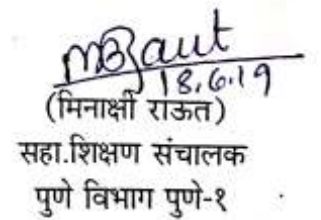 MBRaut
18.6.19
(मिनाक्षी राऊत)
सहा.शिक्षण संचालक
पुणे विभाग पुणे-१